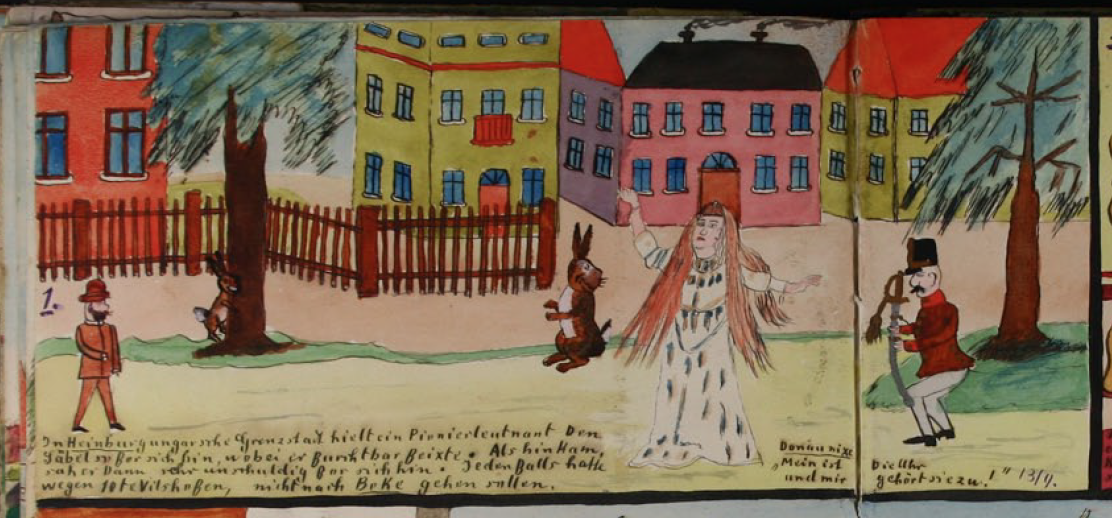 1.
In Heinburg ungarsche Grenzstadt hielt ein Pionierleutnant Den
Säbel so for sich hin, wobei er Furchtbar feixte. Als hin kam,
sah er Dann sehr unschuldig for sich hin. Jedenfalls hatte
wegen 10te Vilshofen, nicht nach Beke gehen sollen.
Donau nixe
„Mein ist Die Uhr
und mir gehört sie zu!" 13/4.